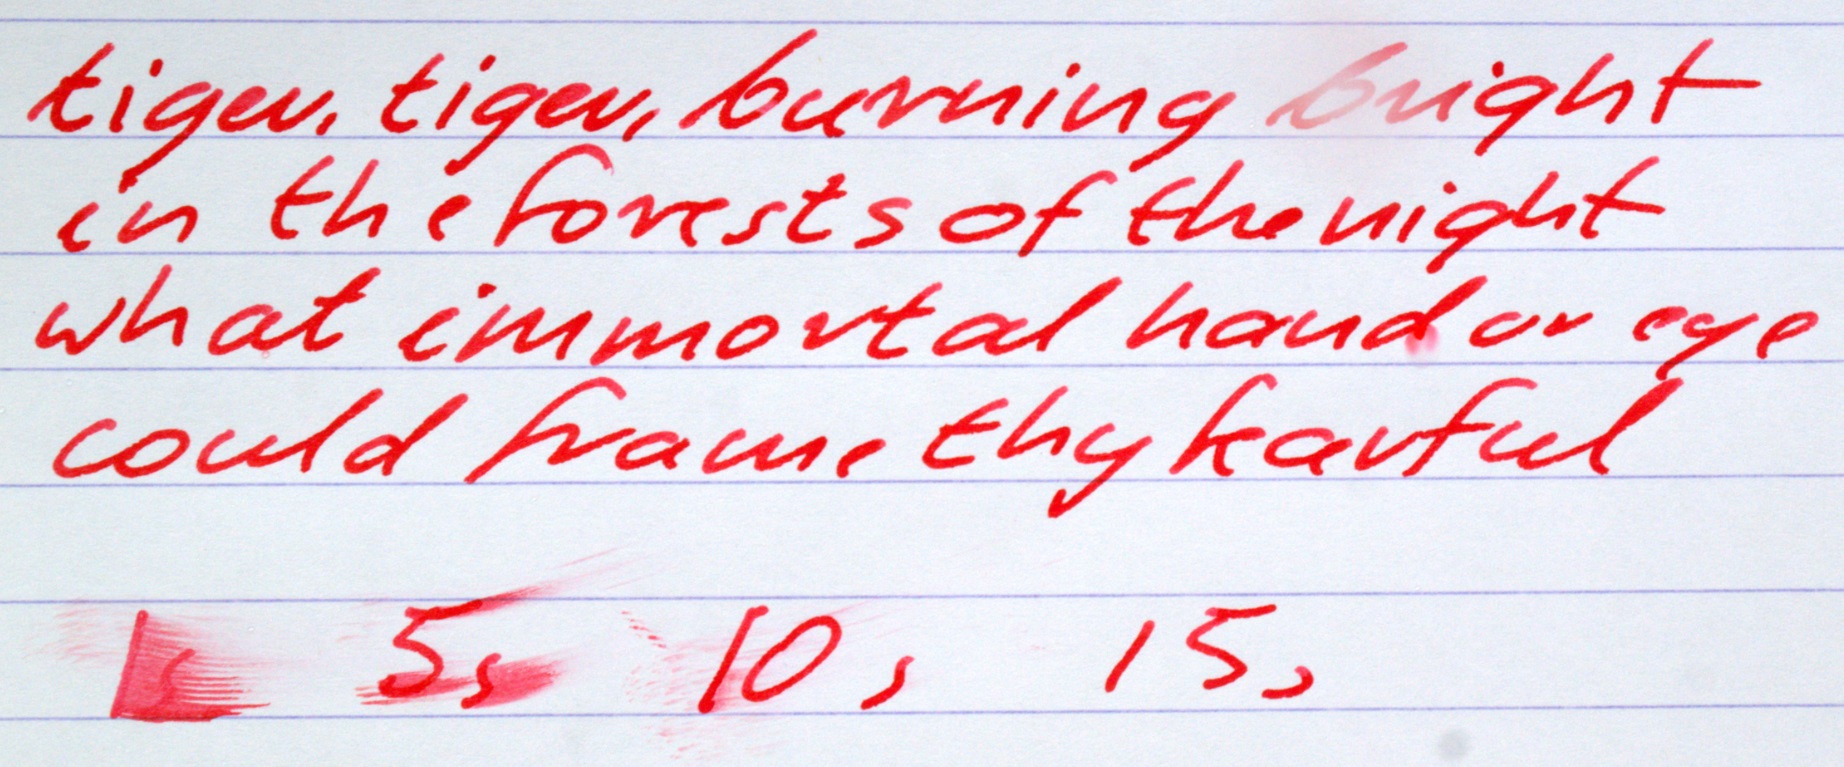 tiger, tiger, burning bright
in the forests of the night
what immortal hand or eye
could frame thy fearful
1s 5s 10s 15s